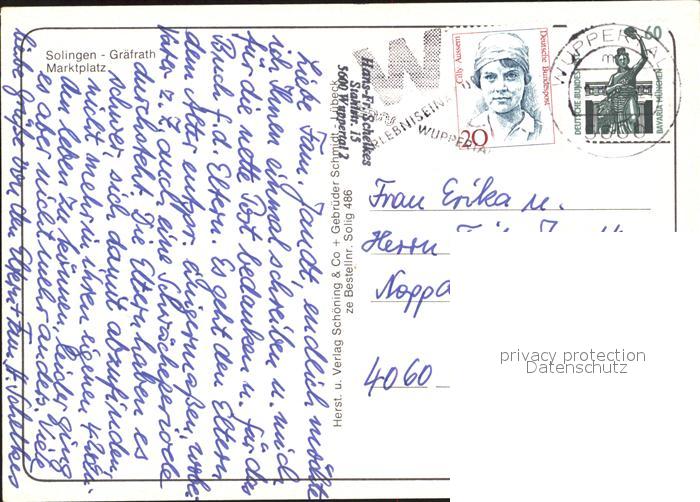 Solingen - Gräfrath
Marktplatz
Liebe Fam. Jandt, endlich möchte
ich Ihnen einmal schreiben u. mich
für die nette Post bedanken u. für das
Buch f. d. Eltern. Es geht den Eltern
dem Alter entspr. einigermaßen, wobei
Vater z. Z. auch eine Schwächeperiode
durchsteht. Die Eltern haben es
schwer, sich damit abzufinden,
nicht mehr in ihren eigenen 4 Wän-
den leben zu können, leider ging
es aber nicht mehr anders. Viele
liebe Grüße von den Eltern u.
Herst. u. Verlag Schöning & Co + Gebrüder Schmidt, Lübeck
ze Bestellnr. Solig 486
Hans-Fr. Scheikes
5600 Wuppertal 2
ERLEBHISEIN
WUPPERTAL
Cilly Aussem
Deutsche Bundespost
20
WUPPERTAL
60
DEUTSCHE BUNDES
BAVARIA MÜNCHEN
Frau Erika u.
Herrn
Noppa
4060
privacy protection
Datenschutz